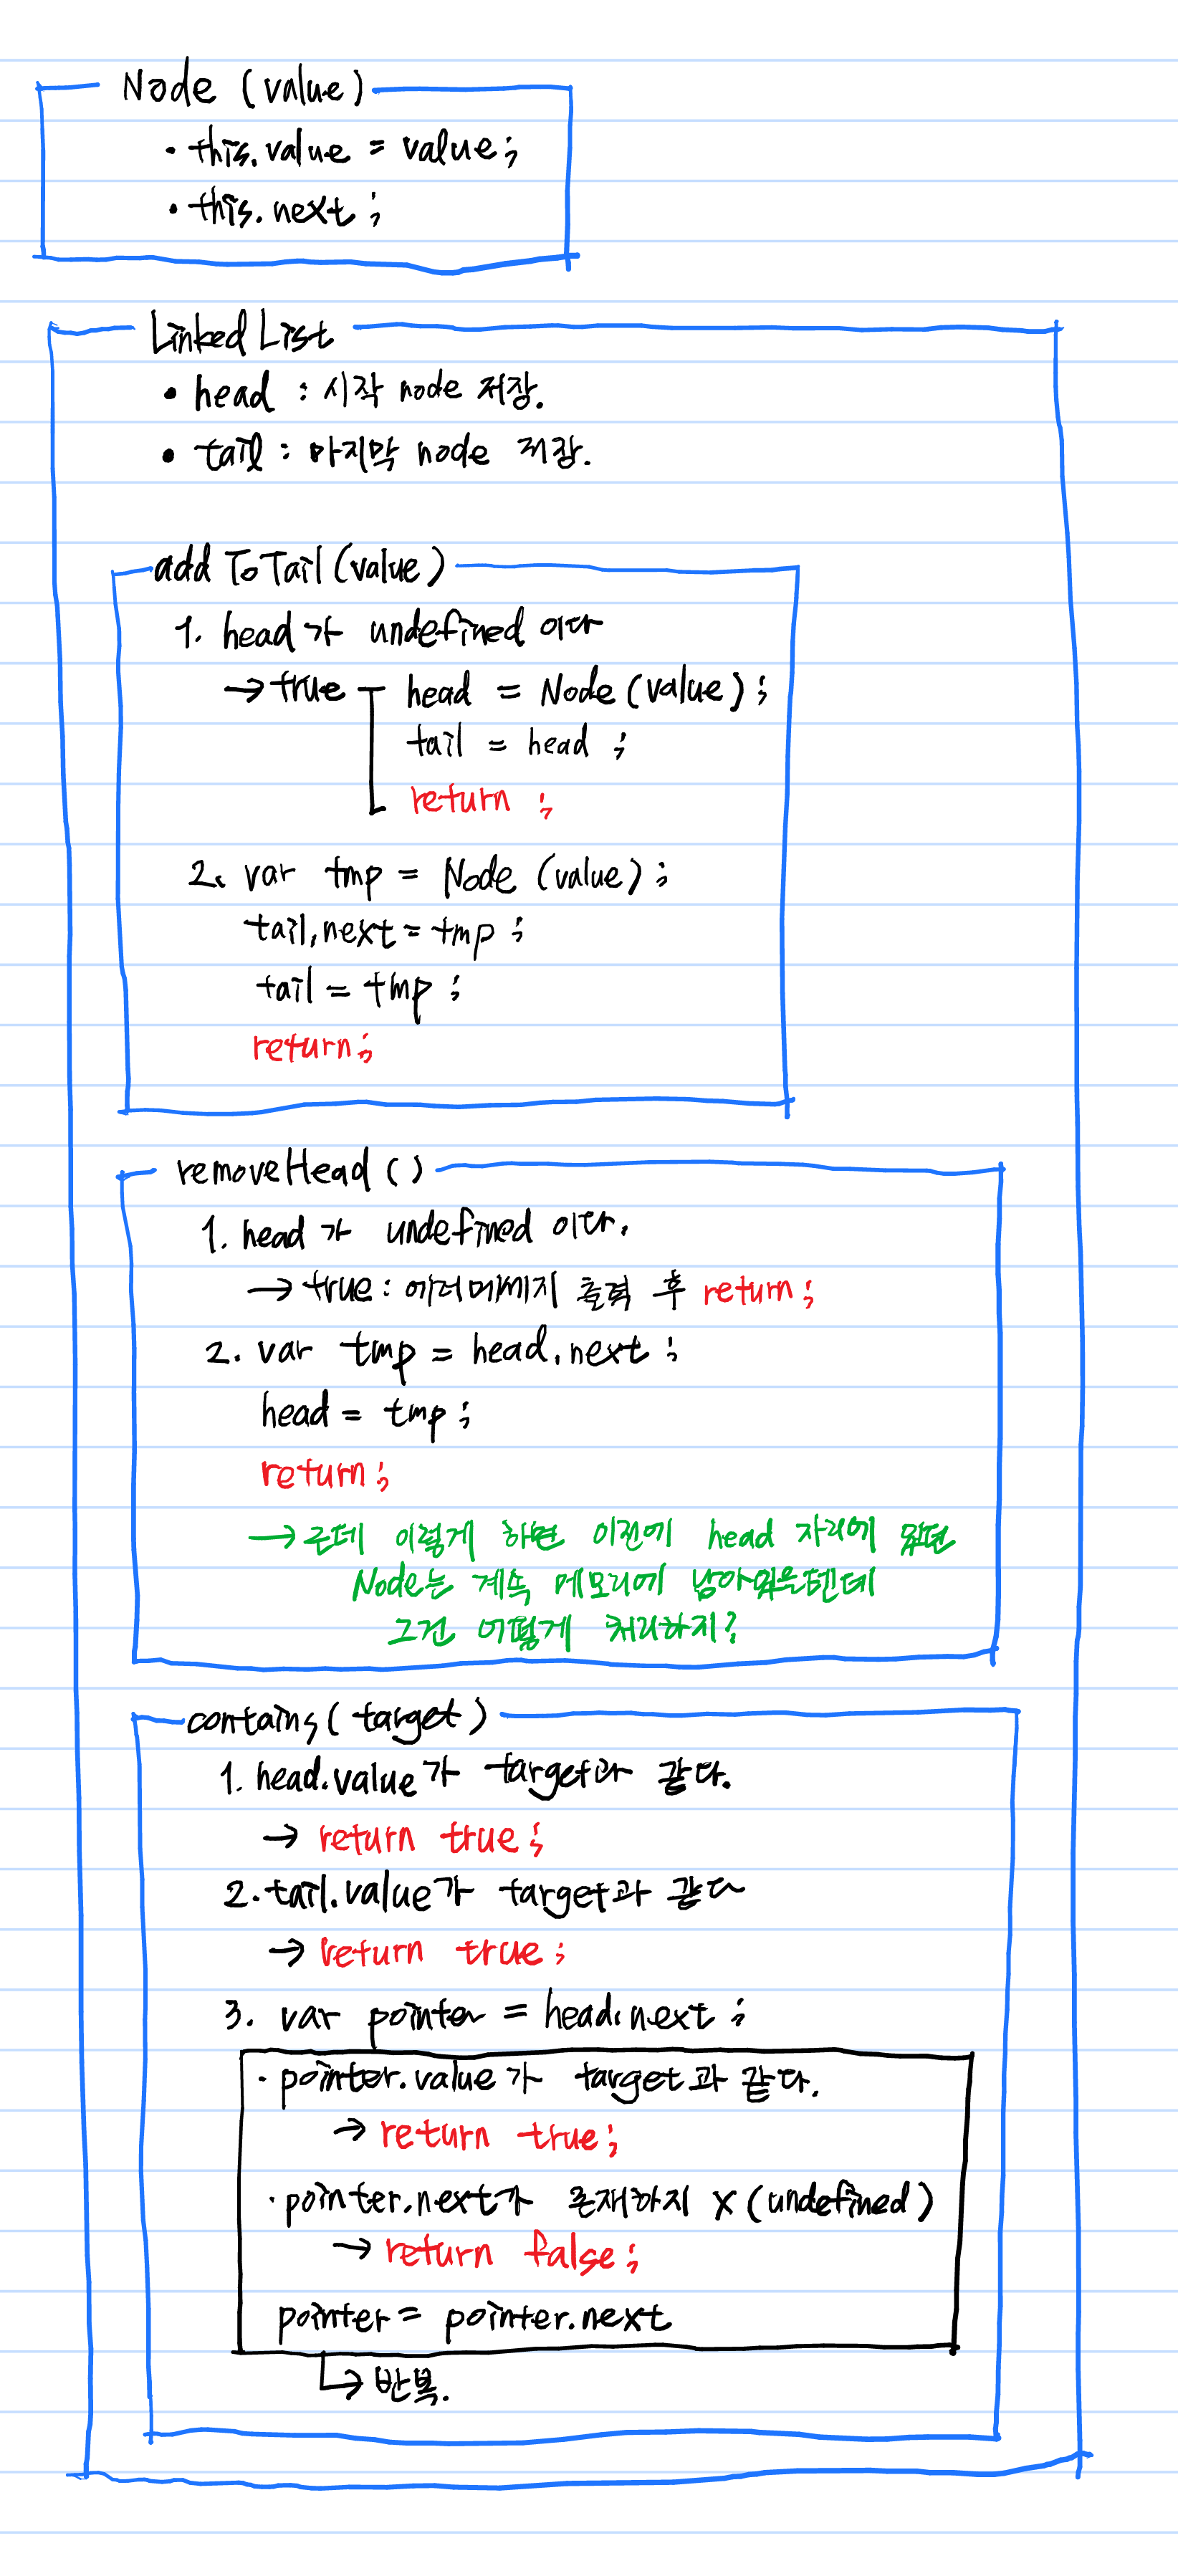 Node (value)
• this.value = value;
• this.next;
Linked List
• head : 시작 node 저장.
• tail : 마지막 node 저장.
add ToTail (value)
1. head가 undefined 이다
→ true head = Node (value);
tail = head ;
return ;
2. var tmp = Node (value);
tail.next = tmp ;
tail = tmp ;
return;
removeHead ()
1. head 가 undefined 이다.
→ true : 에러메세지 출력 후 return;
2. var tmp = head.next ;
head = tmp ;
return;
→ 근데 이렇게 하면 이전에 head 자리에 있던
Node는 계속 메모리에 남아있을텐데
그건 어떻게 처리하지?
contains ( target )
1. head.value가 target과 같다.
→ return true ;
2. tail.value가 target과 같다
→ return true ;
3. var pointer = head.next ;
· pointer.value 가 target과 같다.
→ return true;
· pointer.next가 존재하지 X (undefined)
→ return false ;
pointer = pointer.next
↳ 반복.